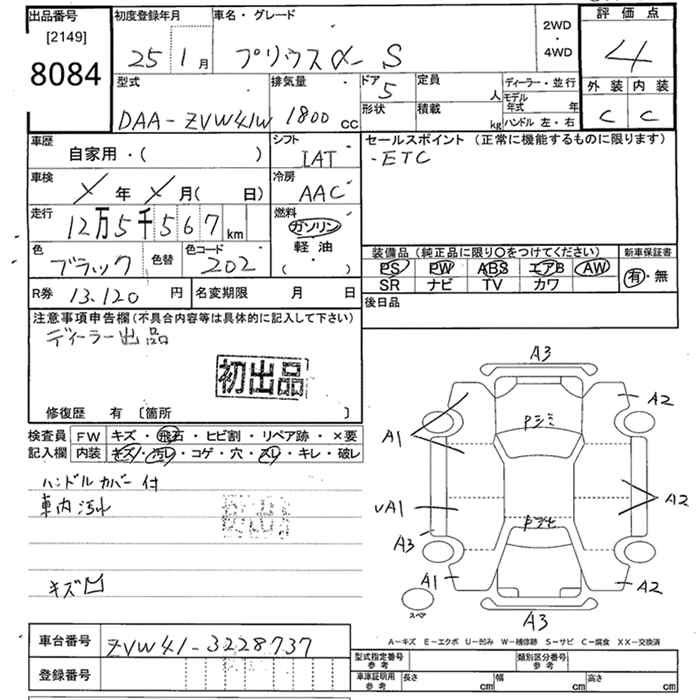 出品番号 初度登録年月 車名・グレード 2WD・4WD 評価点
[2149]
8084 25 1月 プリウスα- S 4
型式 排気量 ドア 定員 ディーラー・並行 外装 内装
5 人 モデル年式 年
DAA-ZVW41W 1800cc 形状 積載 kg ハンドル 左・右 C C
車歴 シフト セールスポイント (正常に機能するものに限ります)
自家用・( ) IAT ・ETC
車検 冷房
年 月( 日) AAC
走行 燃料
12万5千567km ガソリン
色 色替 色コード 軽油 装備品(純正品に限り〇をつけてください) 新車保証書
ブラック 202 ( ・ ) PS PW ABS エアB AW 有・無
SR ナビ TV カワ
R券 13.120円 名変期限 月 日 後日品
注意事項申告欄(不具合内容等は具体的に記入して下さい)
ディーラー出品
初出品
修復歴 有 〔箇所 〕
検査員 FW キズ・飛石・ヒビ割・リペア跡・×要
記入欄 内装 キズ・汚レ・コゲ・穴・スレ・キレ・破レ
ハンドルカバー付
車内汚れ
キズ凹
A3
A2
A1
Pジミ
A2
UA1
Pジミ
A3
A1 A2
スペア
A3
A-キズ E-エクボ U-凹み W-補修跡 S-サビ C-腐食 XX-交換済
車台番号 ZVW41-3228737
型式指定番号 参考 類別区分番号 参考
登録番号 車庫証明用 参考 長さ cm 幅 cm 高さ cm